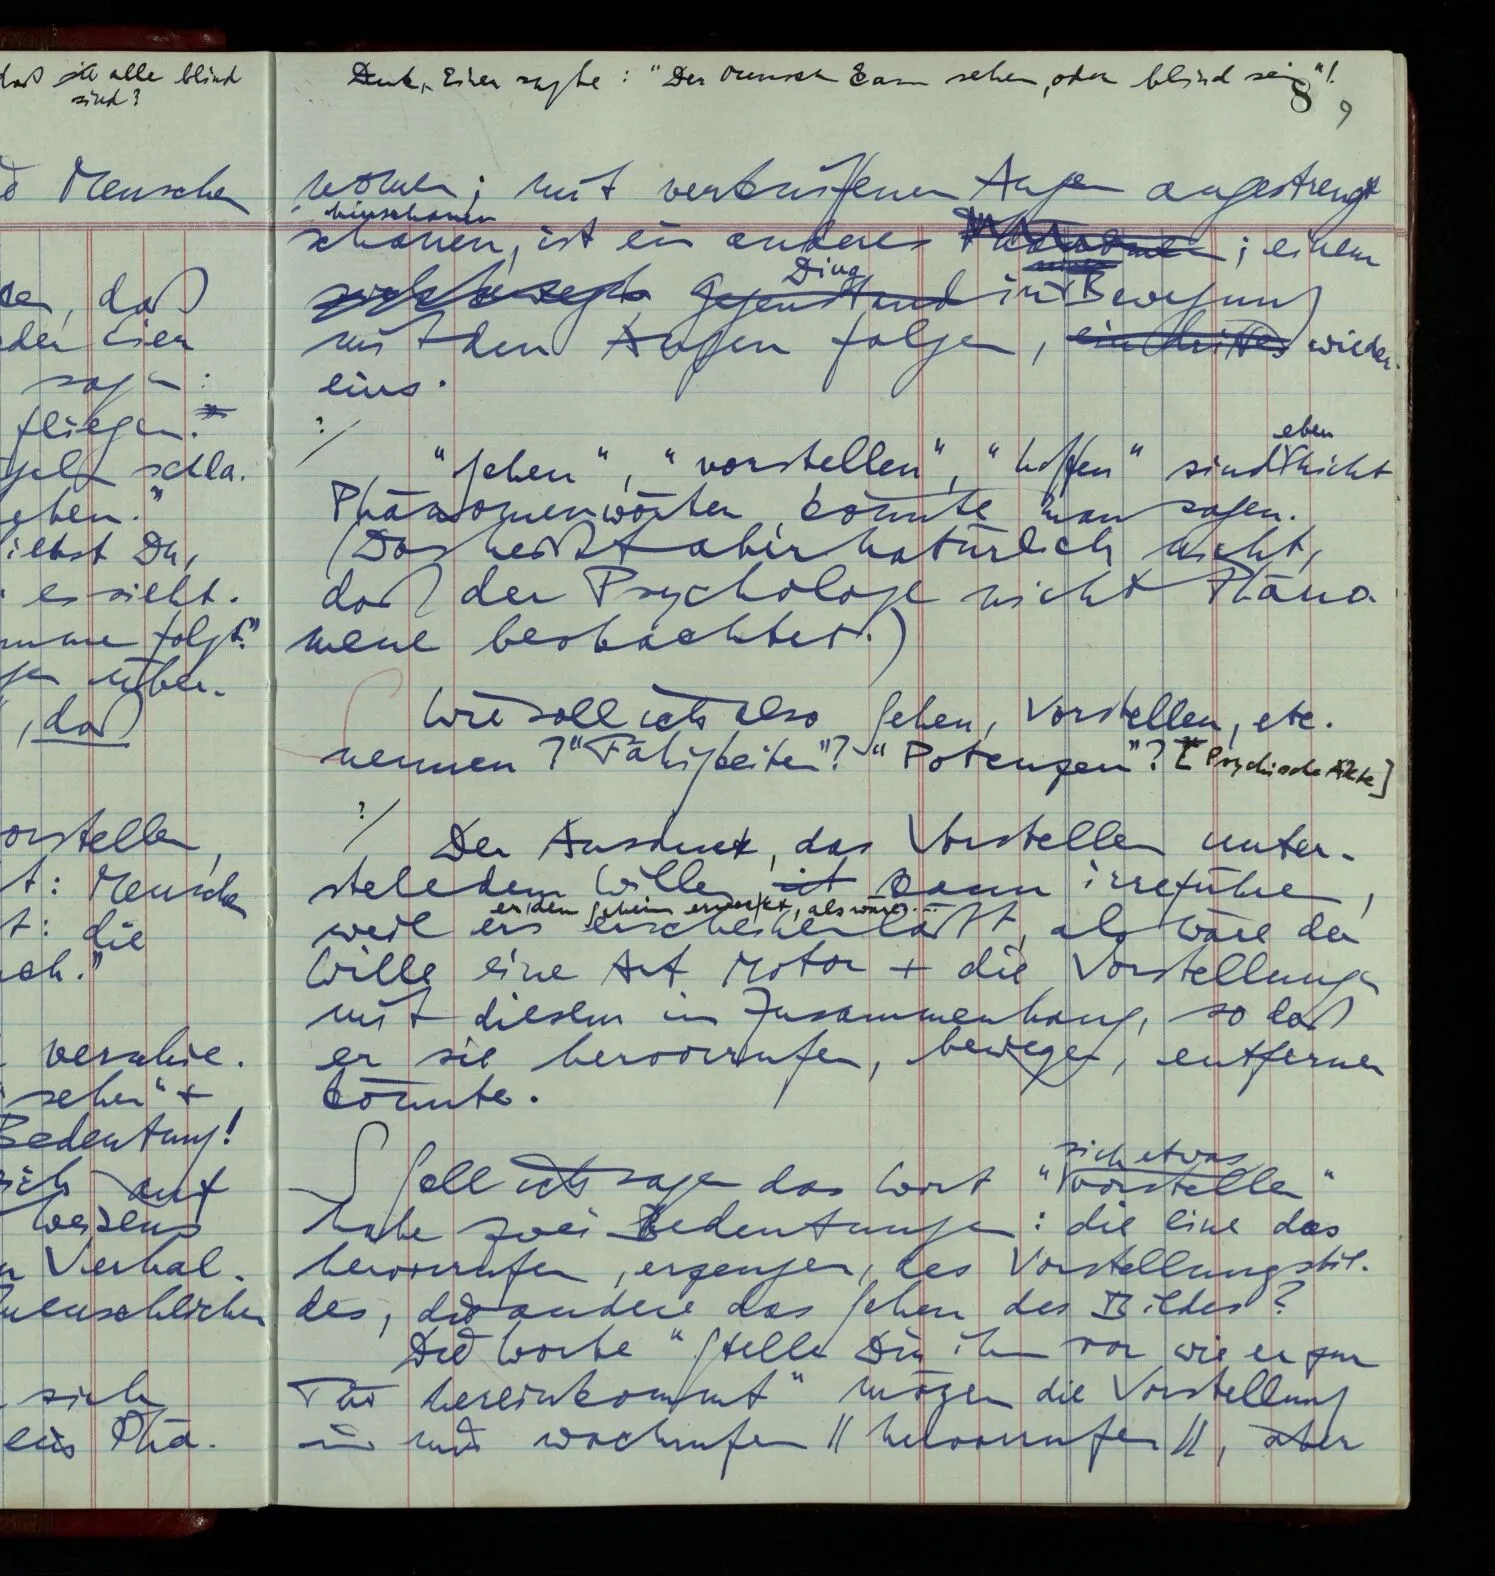 daß ich alle blind
sind?
Menschen
, daß
sagen:
fliegen."
schla-
geben."
siehst Du,
es sieht.
folgt."
über-
, daß
vorstellen,
t: Mensch
t: die
ch."
verschie-
sehen" +
Bedeutung!
sich auf
Wesens
Verhal-
menschlichen
sich
ein Phä-
Denk, Einer sagte: "Der Mensch kann sehen, oder blind sein"!
8 9
nomen; mit verkniffenen Augen angestrengt
hinschauen
schauen, ist ein anderes Phänomen; einem
Ding
Gegenstand in Bewegung
mit den Augen folgen, ein drittes wieder
eins.
?/
eben
"Sehen", "vorstellen", "hoffen" sind nicht
Phänomenwörter, könnte man sagen.
(Das heißt aber natürlich nicht,
daß der Psychologe nicht Phäno
mene beobachtet.)
Wie soll ich also Sehen, Vorstellen, etc.
nennen? "Fähigkeiten"? "Potenzen"? [Psychische Akte]
?/
Der Ausdruck, das Vorstellen unter-
stehe dem Willen, ist kann irreführen,
er den Schein erweckt, als wäre...
weil er's erscheinen läßt, als wäre der
Wille eine Art Motor + die Vorstellungen
mit diesem im Zusammenhang, so daß
er sie hervorrufen, bewegen, entfernen
könnte.
Soll ich sagen das Wort "sich etwas
vorstellen"
habe zwei Bedeutungen: die eine das
hervorrufen, erzeugen, des Vorstellungsbil-
des, die andere das Sehen des Bildes?
Die Worte "Stelle Dir ihn vor wie er zur
Tür hereinkommt" mögen die Vorstellung
in mir wachrufen // hervorrufen //, aber